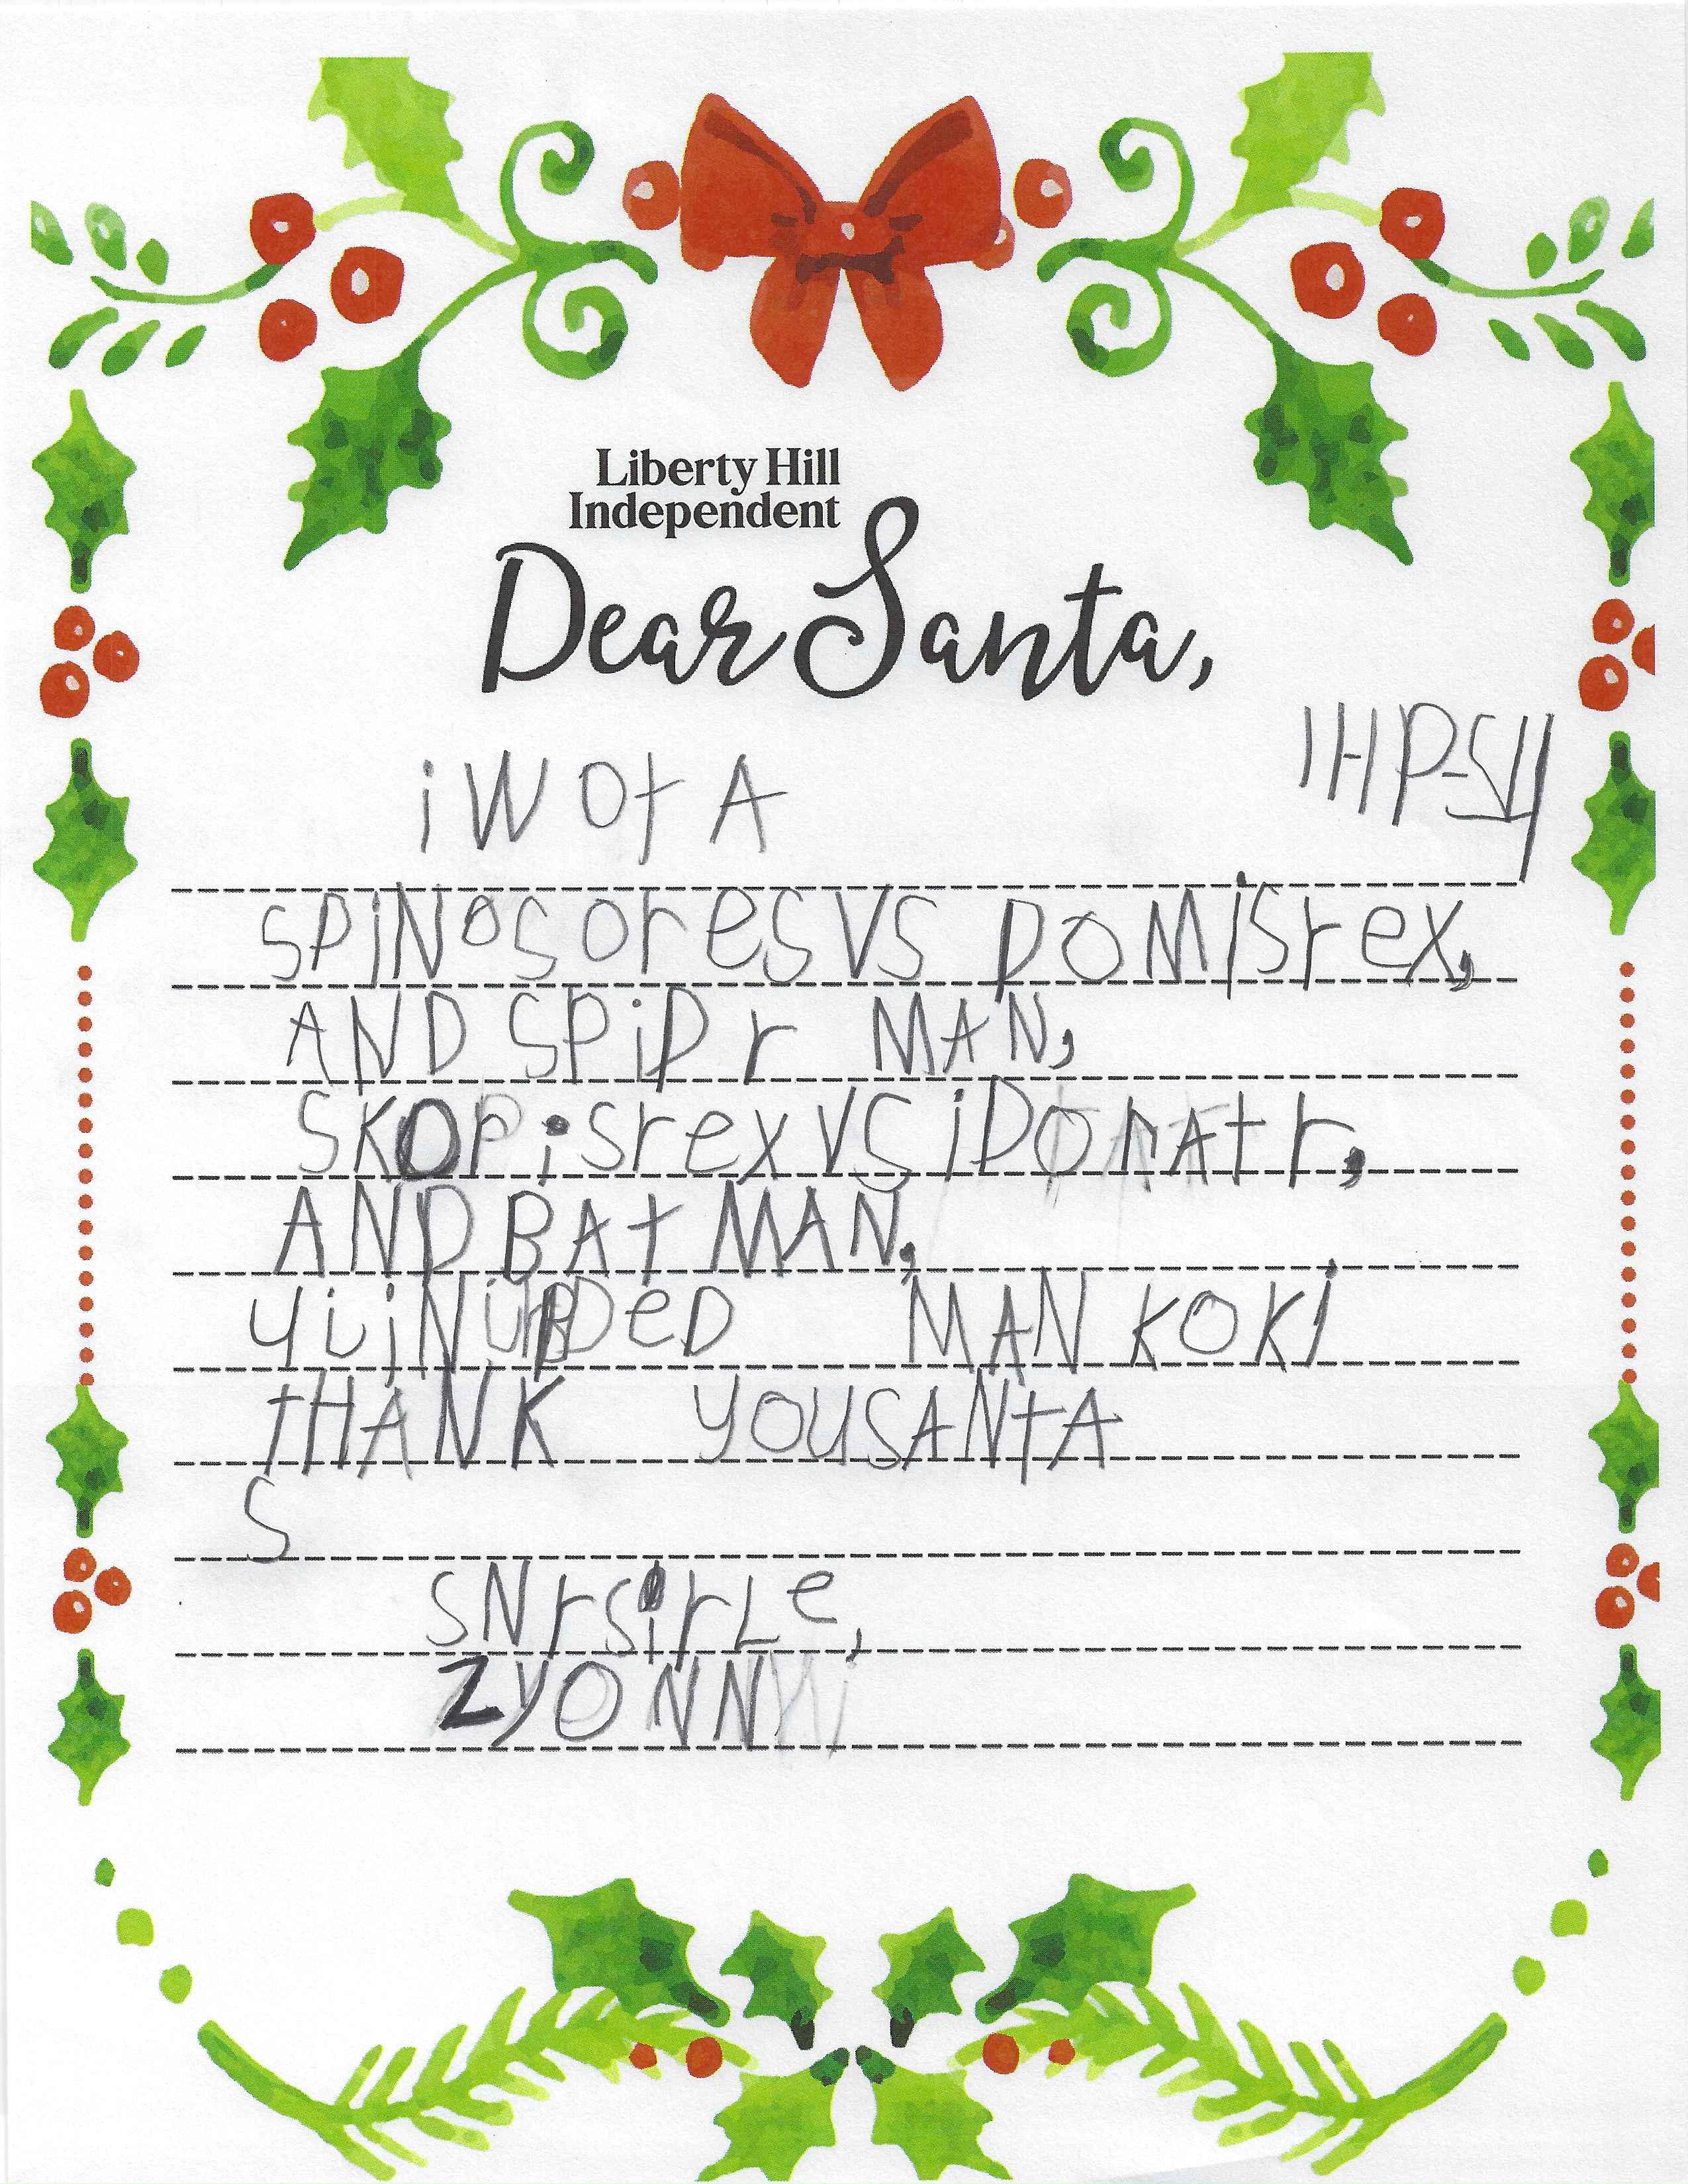 Liberty Hill
Independent
Dear Santa,
iWOt A
SPiNOSOreS VS DOMiSrex,
AND SPiDr MAN,
SKOrPiSrex VS iDOrAtr,
AND BAt MAN,
MAN KOKi
tHANK YOU SANtA
S
SNrSirLe,
ZYONN